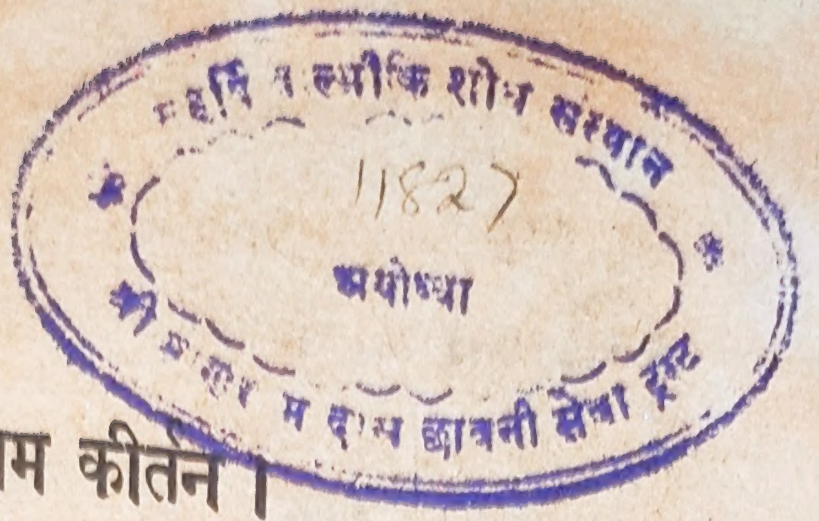 महर्षि वाल्मीकि शोध संस्थान
11827
अयोध्या
श्री दास छावनी सेवा ट्रस्ट
कीर्तन ।